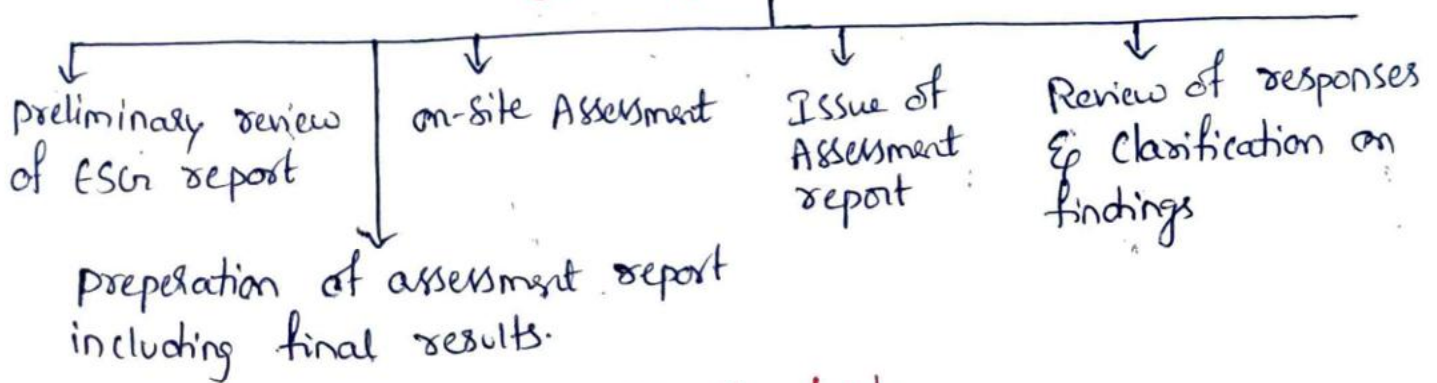 preliminary review
of ESG report
on-site Assessment
Issue of
Assessment
report
Review of responses
& Clarification on
findings
preperation of assessment report
including final results.